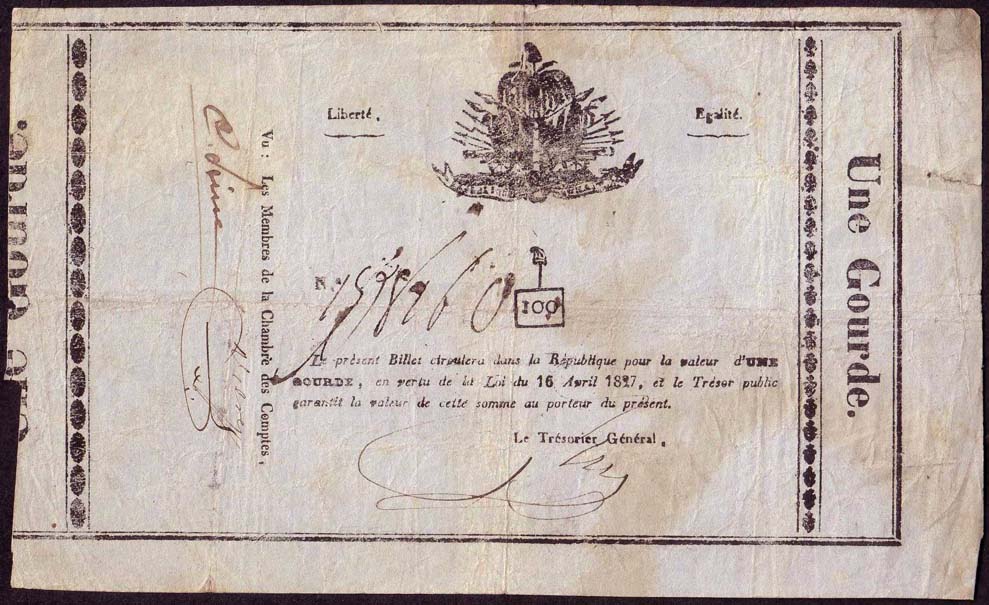 Liberté.
Egalité.
N.º
100
Le présent Billet circulera dans la République pour la valeur d'UNE
GOURDE, en vertu de la Loi du 16 Avril 1827, et le Trésor public
garantit la valeur de cette somme au porteur du présent.
Le Trésorier Général.
Vu : Les Membres de la Chambre des Comptes,
Une Gourde.
Une Gourde.